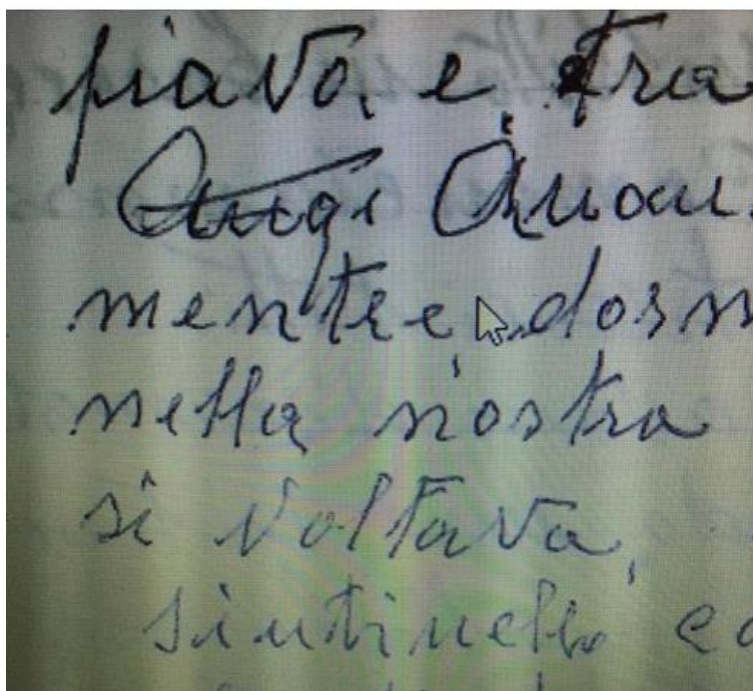 piava, e, tra
mentre, dorm
nella nostra
si voltava,
sintinella ed